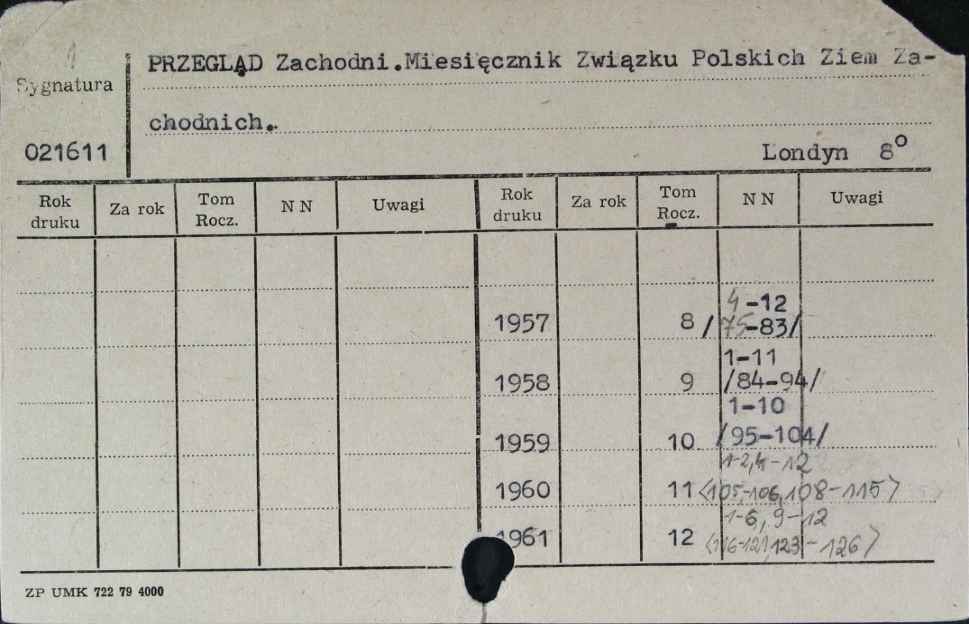 PRZEGLĄD Zachodni.Miesięcznik Związku Polskich Ziem Za-
Sygnatura
chodnich.
021611
Londyn 8°
Rok druku Za rok Tom Rocz. N N Uwagi Rok druku Za rok Tom Rocz. N N Uwagi
4-12
1957 8 /75-83/
1-11
1958 9 /84-94/
1-10
1959 10 /95-104/
1-2,4-12
1960 11 <105,-106,108-115>
1-6, 9-12
1961 12 <116-121,123-126>
ZP UMK 722 79 4000